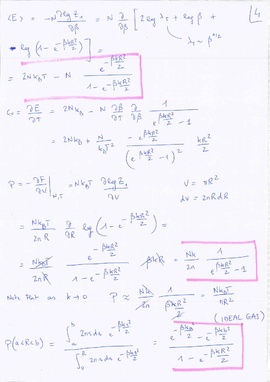 4
⟨E⟩ = -N ∂log Z₁/∂β = N ∂/∂β [ 2 log λ_T + log β +
λ_T ~ β^{1/2}
- log (1 - e^{-βkR²/2}) ] =
= 2Nk_BT - N kR²/2 e^{-βkR²/2} / (1 - e^{-βkR²/2})
∂E/∂T = 2Nk_B - N ∂β/∂T ∂/∂β 1/(e^{βkR²/2} - 1)
= 2Nk_B + N/(k_BT²) · -e^{βkR²/2}/(e^{βkR²/2} - 1)² kR²/2
P = -∂F/∂V |_{N,T} = Nk_BT ∂log Z₁/∂V
V = πR²
dV = 2πR dR
= Nk_BT/2πR ∂/∂R log (1 - e^{-βkR²/2}) =
= Nk_BT/2πR e^{-βkR²/2}/(1 - e^{-βkR²/2}) βkR = Nk/2π 1/(e^{βkR²/2} - 1)
Note that as k→0 P ≈ Nk/2π 1/(βkR²/2) = Nk_BT/πR²
(IDEAL GAS)
P(a<R<b) = ∫_a^b 2πs ds e^{-βks²/2} / ∫_0^R 2πs ds e^{-βks²/2} = (e^{-βka²/2} - e^{-βkb²/2}) / (1 - e^{-βkR²/2})